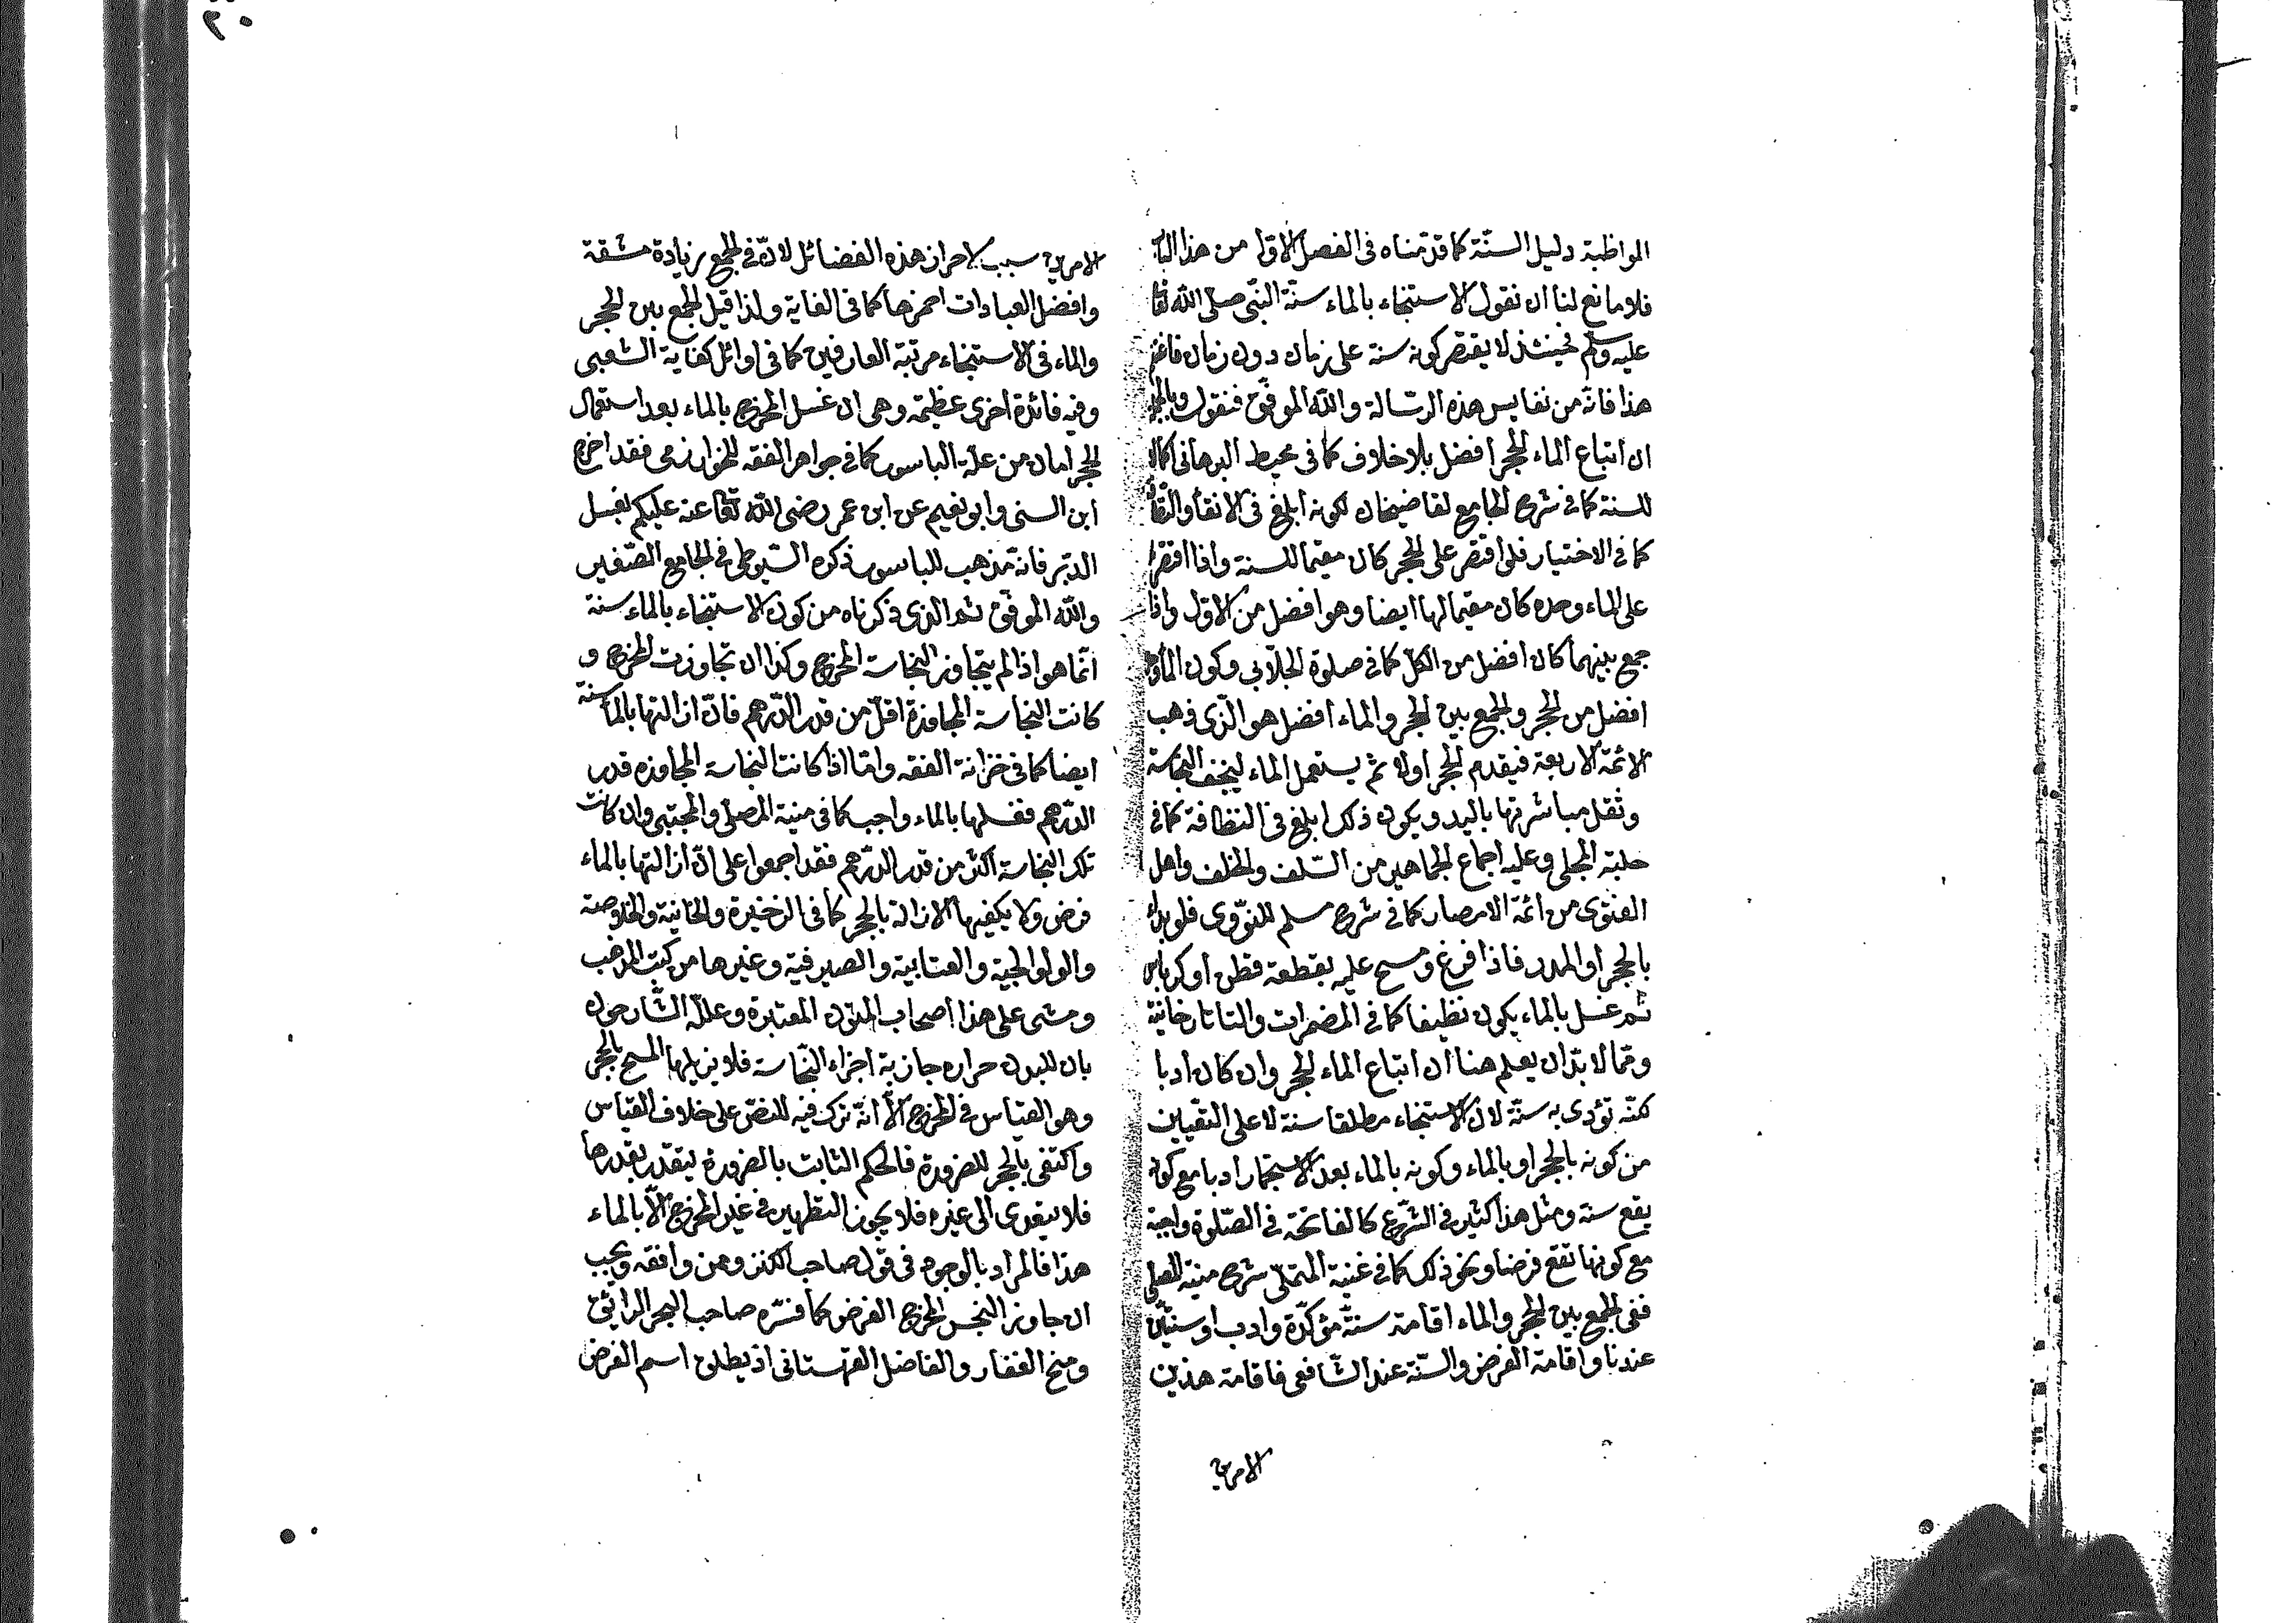 المواظبة دليل السنّة كما قدّمناه فى الفصل الاول من هذا الباب
فلا مانع لنا ان نقول الاستنجاء بالماء سنّة النبّى صلى الله تعا
عليه وسلم فحينئذ لا يقتصر كونه سنة على زمان دون زمان فاغتنم
هذا فانّه من نفايس هذه الرسالة والله الموفّق فنقول وبالجملة
ان اتباع الماء الحجر افضل بلا خلاف كما فى محيط البرهانى
للسنة كما فى شرح الجامع لقاضيخان لكونه ابلغ فى الانقاء
كما فى الاختيار فلو اقتصر على الحجر كان مقيما للسنة واذا اقتصر
على الماء وحده كان مقيما لها ايضا وهو افضل من الاول واذا
جمع بينهما كان افضل من الكلّ كما فى صلوة الجلّابى وكون الماء
افضل من الحجر والجمع بين الحجر والماء افضل هو الذّى ذهب
الائمّة الاربعة فيقدم الحجر اولا ثم يستعمل الماء ليخف النجاسة
وتقل مباشرتها باليد ويكون ذلك ابلغ فى النظافة كما فى
حلبة المجلى وعليه اجماع الجماهير من السّلف والخلف واهل
الفتوى من ائمّة الامصار كما فى شرح مسلم للنوّوى فلو بداء
بالحجر او المدر فاذا فرغ ومسح عليه بقطعة قطن او كرباس
ثمّ غسل بالماء يكون نظيفا كما فى المضمرات والتاتارخانيّة
وممّا لا بدّ ان يعلم هنا ان اتباع الماء الحجر وان كان ادبا
لكنّه تؤدى به سنّة لان الاستنجاء مطلقا سنة لا على التعّيين
من كونه بالحجر او بالماء وكونه بالماء بعد الاستجمار ادبا مع كونه
يقع سنة ومثل هذا كثير فى الشرّع كالفاتحة فى الصّلوة واجبة
مع كونها تقع فرضا ونحو ذلك كما فى غنية المتملّى شرح منية المصلى
ففى الجمع بين الحجر والماء اقامة سنّة مؤكدّة وادب او سنتّين
عندنا واقامة الفرض والسنّة عند الشّافعى فاقامة هذين
الامرين
٢٠
الامرين سبب لاحراز هذه الفضائل لانّه فى الجمع زيادة مشقة
وافضل العبادات احمزها كما فى الغاية ولذا قيل الجمع بين الحجر
والماء فى الاستنجاء مرتبة العارفين كما فى اوائل كفاية الشعبى
وفيه فائدة اخرى عظيمة وهى ان غسل المخرج بالماء بعد استعمال
الحجر امان من علّة الباسور كما فى جواهر الفقه للخوارزمى فقد اخرج
ابن السنى وابو نعيم عن ابن عمر رضى الله تعا عنه عليكم بغسل
الدبّر فانّه مذهب للباسور ذكره السّيوطى فى الجامع الصّغير
والله الموفّق ثمّ الذى ذكرناه من كون الاستنجاء بالماء سنة
انّما هو اذا لم يتجاوز النجاست المخرج وكذا ان تجاوزت المخرج و
كانت النجاسة المجاوزة اقلّ من قدر الدّرهم فانّ ازالتها بالماء سنة
ايضا كما فى خزانة الفقه وامّا اذا كانت النجاسة المجاوزه قدر
الدّرهم فغسلها بالماء واجب كما فى منية المصلى والمجتبى وان كانت
تلك النجاسة اكثر من قدر الدّرهم فقد اجمعوا على انّ ازالتها بالماء
فرض ولا يكفيها الازالة بالحجر كما فى الذخيرة والخانية والخلاوصة
والولوالجية والعتابية والصيرفية وغيرها من كتب المذهب
ومشى على هذا اصحاب المتون المعتبرة وعلّله الشّارحون
بان للبدن حراره جاذبة اجزاء النّجاسة فلا يزيلها المسح بالحجر
وهو القيّاس فى المخرج الاّ انّه ترك فيه للنصّ على خلاف القيّاس
واكتفى بالحجر للضرورة فالحكم الثابت بالضرورة ليتقدر بقدرها
فلا يتعدى الى غيره فلا يجوز التطهير فى غير المخرج الاّ بالماء
هذا فالمراد بالوجوب فى قول صاحب الكنز ومن وافقه ويجب
ان جاوز النجس المخرج الفرض كما فسّره صاحب البحر الرائق
ومنح الغفار والفاضل القهستانى اذ يطلق اسم الفرض